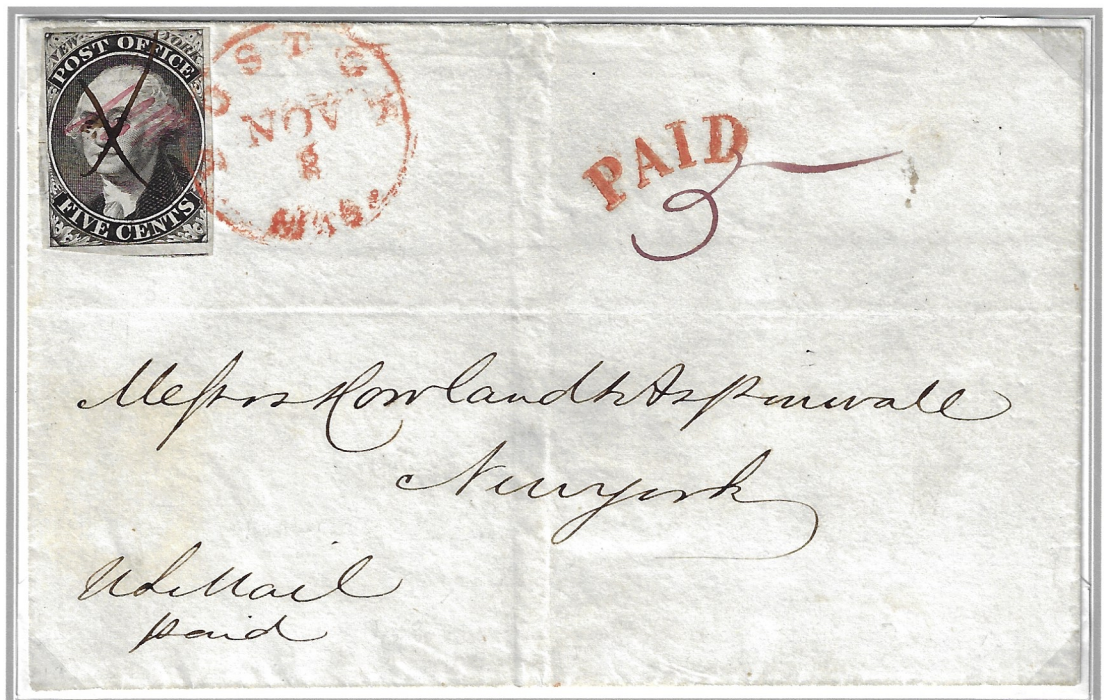 NEW YORK
POST OFFICE
FIVE CENTS
BOSTON
NOV
8
MAS
PAID
5
Messrs Howland & Aspinwall
New York
U S Mail
paid